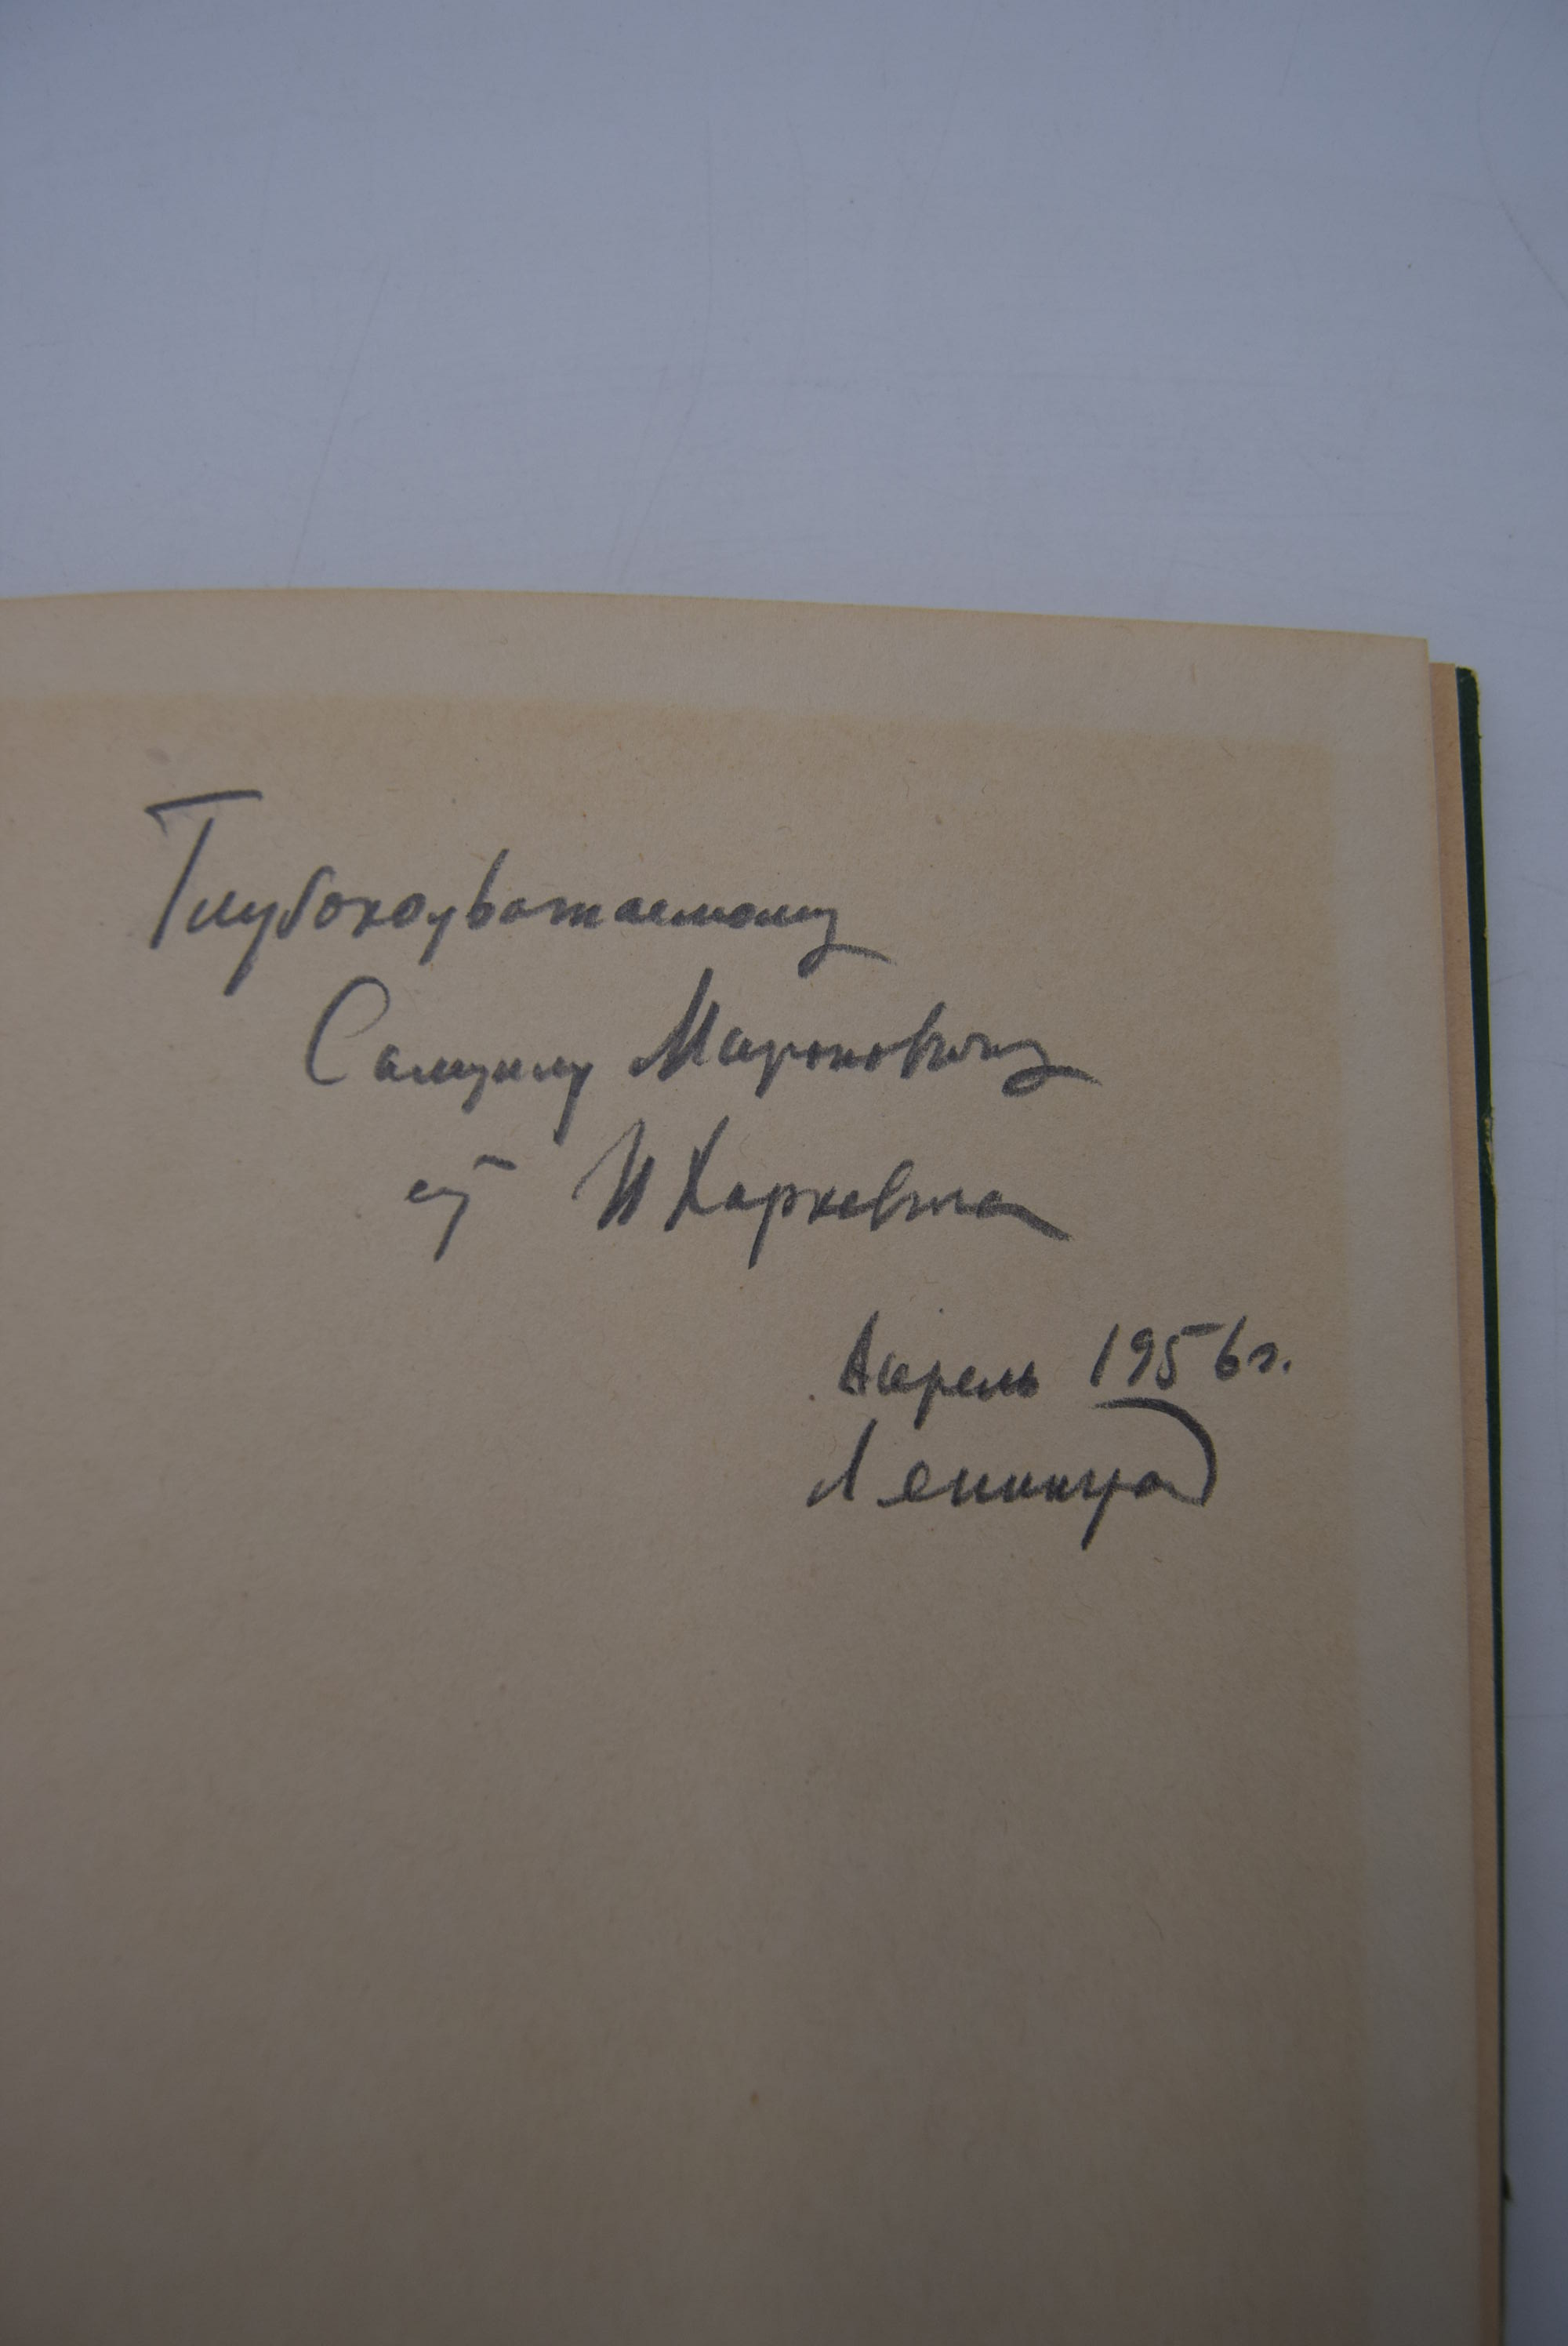 Глубокоуважаемому
Самуилу Мироновичу
от И Харкевича
Апрель 1956 г.
Ленинград